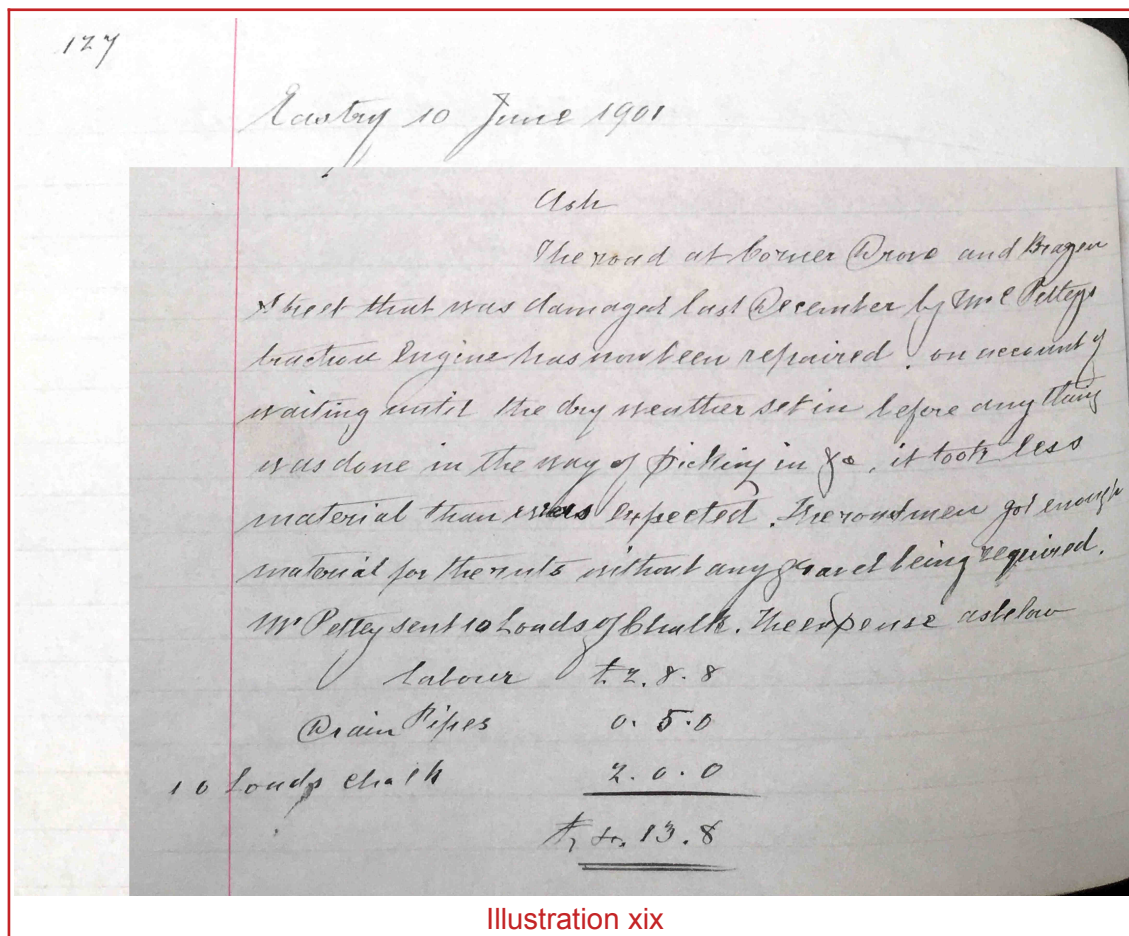 127
Eastry 10 June 1901
Ash
The road at Corner Drove and Brazen
Street that was damaged last December by Mr C Petteys
traction Engine has now been repaired. on account of
waiting until the dry weather set in before any thing
was done in the way of picking in &c, it took less
material than was expected. The roadmen got enough
material for the ruts without any gravel being required.
Mr Pettey sent 10 Loads of Chalk. The expense as below
labour £2.8.8
Drain Pipes 0.5.0
10 Loads chalk 2.0.0
£4.13.8
Illustration xix